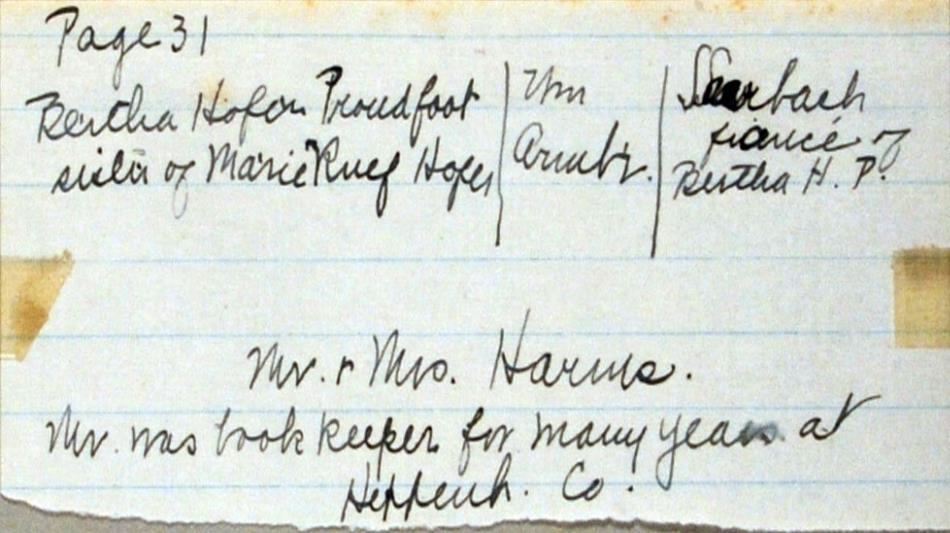 Page 31
Bertha Hofen Proudfoot
sister of Marie Ruef Hofen
Wm
fiancé of
Bertha H. P.
Mr. & Mrs. Harms.
Mr. was bookkeeper for many years at
Co.